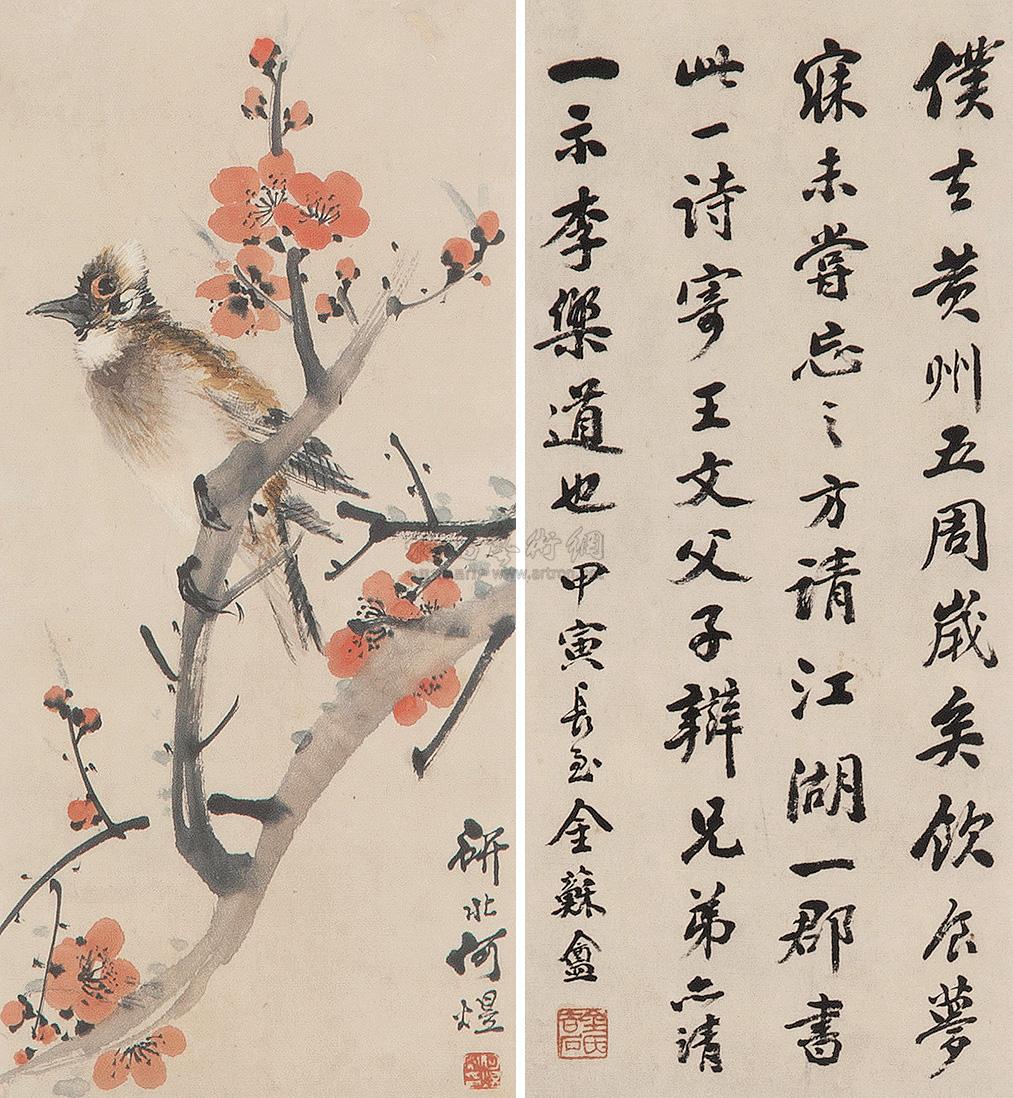 僕去黄州五周歲矣飲食夢
寐未嘗忘之方請江湖一郡書
此一诗寄王文父子辯兄弟亦请
一示李樂道也
甲寅長至金蘇盦
研北何煜
www.artron